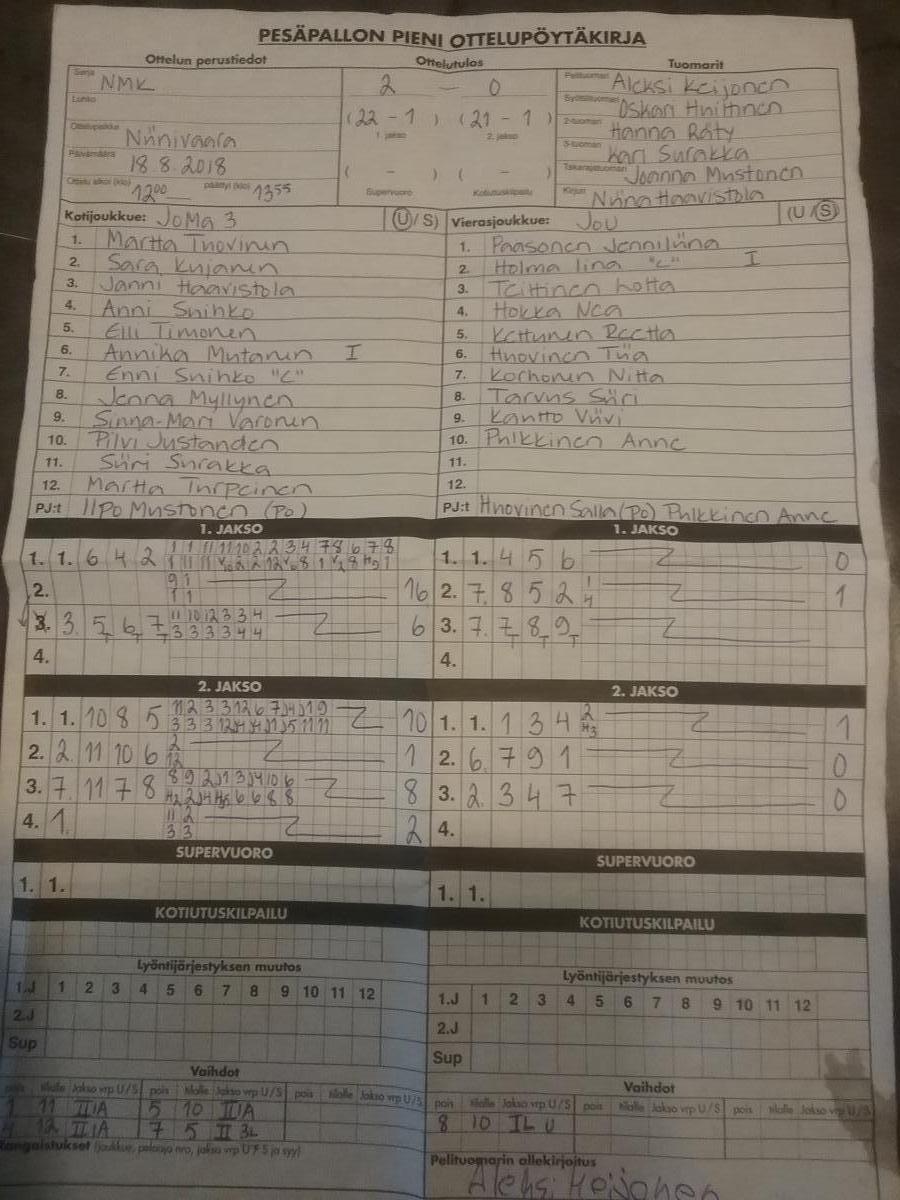 PESÄPALLON PIENI OTTELUPÖYTÄKIRJA
Ottelun perustiedot Ottelutulos Tuomarit
Sarja NMK 2 — 0 Pelituomari Aleksi Keijonen
Lohko Syöttötuomari Oskari Huittinen
(22 - 1) (21 - 1) 2-tuomari Hanna Räty
1. jakso 2. jakso
Ottelupaikka Niinivaara 3-tuomari Kari Surakka
Päivämäärä 18.8.2018 ( - ) ( - ) Takarajatuomari Joanna Mustonen
Ottelu alkoi (klo) 12 00 päättyi (klo) 13 55 Supervuoro Kotiutuskilpailu Kirjuri Niina Haavistola
Kotijoukkue: JoMa 3 (U/S) Vierasjoukkue: JoU (U/S)
1. Martta Tuovinen 1. Paasonen Jenniliina
2. Sara Kujanen 2. Holma Iina "C" I
3. Janni Haavistola 3. Teittinen Lotta
4. Anni Suihko 4. Hokka Nea
5. Elli Timonen 5. Kettunen Reetta
6. Annika Mutanen I 6. Huovinen Tiia
7. Enni Suihko "C" 7. Korhonen Nitta
8. Jenna Myllynen 8. Tarvus Siiri
9. Sinna-Mari Varonen 9. Kantto Viivi
10. Pilvi Justanden 10. Pulkkinen Anne
11. Siiri Surakka 11.
12. Martta Turpeinen 12.
PJ:t Ilpo Mustonen (PO) PJ:t Huovinen Salla (PO) Pulkkinen Anne
1. JAKSO 1. JAKSO
1. 1. 6 4 2 1. 1. 4 5 6 0
2. 9 1 16 2. 7. 8 5 2 1 1
1 1 4
3. 3. 5T 6T 7T 11 10 12 3 3 4 6 3. 7. 7T 8T 9T
3 3 3 3 4 4
4. 4.
2. JAKSO 2. JAKSO
1. 1. 10 8 5 10 1. 1. 1 3 4 2 1
2. 2. 11 10 6 2 1 2. 6. 7 9 1 0
12
3. 7. 11 7 8 8 3. 2. 3 4 7 0
4. 1. 11 2 2 4.
3 3
SUPERVUORO SUPERVUORO
1. 1. 1. 1.
KOTIUTUSKILPAILU KOTIUTUSKILPAILU
Lyöntijärjestyksen muutos Lyöntijärjestyksen muutos
1.J 1 2 3 4 5 6 7 8 9 10 11 12 1.J 1 2 3 4 5 6 7 8 9 10 11 12
2.J 2.J
Sup Sup
Vaihdot Vaihdot
pois tilalle Jakso vrp U/S pois tilalle Jakso vrp U/S pois tilalle Jakso vrp U/S pois tilalle Jakso vrp U/S pois tilalle Jakso vrp U/S pois tilalle Jakso vrp U/S
1 11 II 1A 5 10 II 1A 8 10 IL U
4 12 II 1A 7 5 II 3L
Rangaistukset (joukkue, pelaaja nro, jakso vrp U/S ja syy)
Pelituomarin allekirjoitus
Aleksi Keijonen